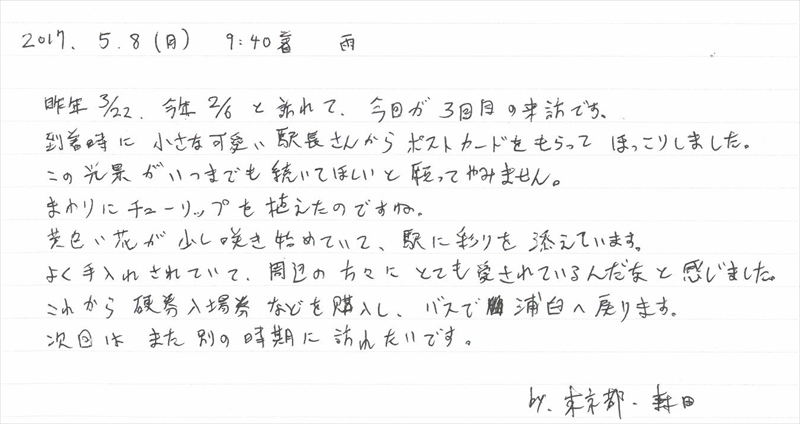 2017. 5.8(月) 9:40着 雨
昨年 3/22、今年 2/6 と訪れて、今回が 3回目の来訪です。
到着時に 小さな可愛い駅長さんから ポストカードをもらって ほっこりしました。
この光景がいつまでも続いてほしいと願ってやみません。
まわりにチューリップを植えたのですね。
黄色い花が少し咲き始めていて、駅に彩りを添えています。
よく手入れされていて、周辺の方々にとても愛されているんだなと感じました。
これから硬券入場券などを購入し、バスで浦臼へ戻ります。
次回は また別の時期に訪れたいです。
by. 東京都・森田